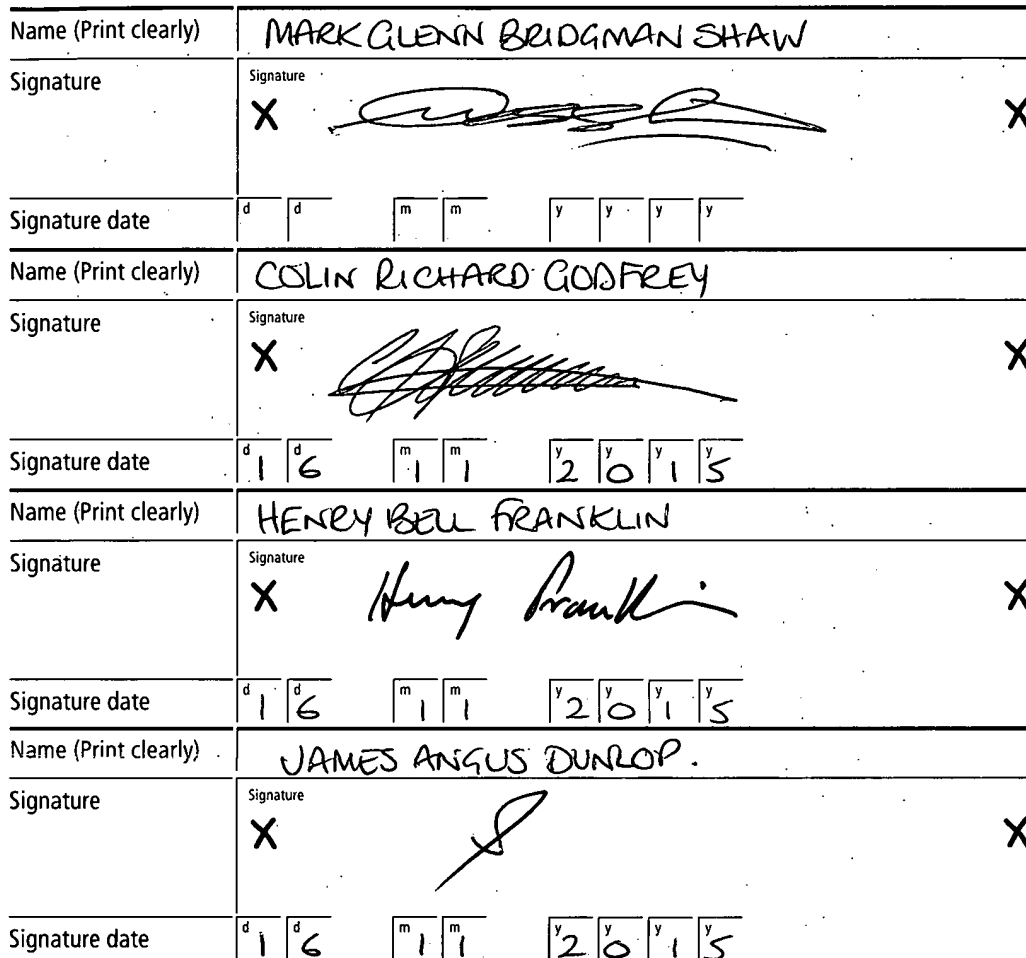 Name (Print clearly) MARK GLENN BRIDGMAN SHAW
Signature Signature
X X
Signature date d d m m y y y y
Name (Print clearly) COLIN RICHARD GODFREY
Signature Signature
X X
Signature date d d m m y y y y
1 6 1 1 2 0 1 5
Name (Print clearly) HENRY BELL FRANKLIN
Signature Signature
X Henry Franklin X
Signature date d d m m y y y y
1 6 1 1 2 0 1 5
Name (Print clearly) JAMES ANGUS DUNLOP.
Signature Signature
X X
Signature date d d m m y y y y
1 6 1 1 2 0 1 5